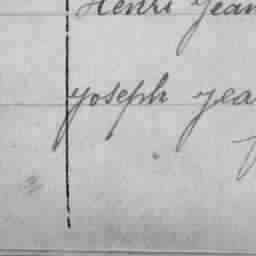 Henri Jean
Joseph Jea